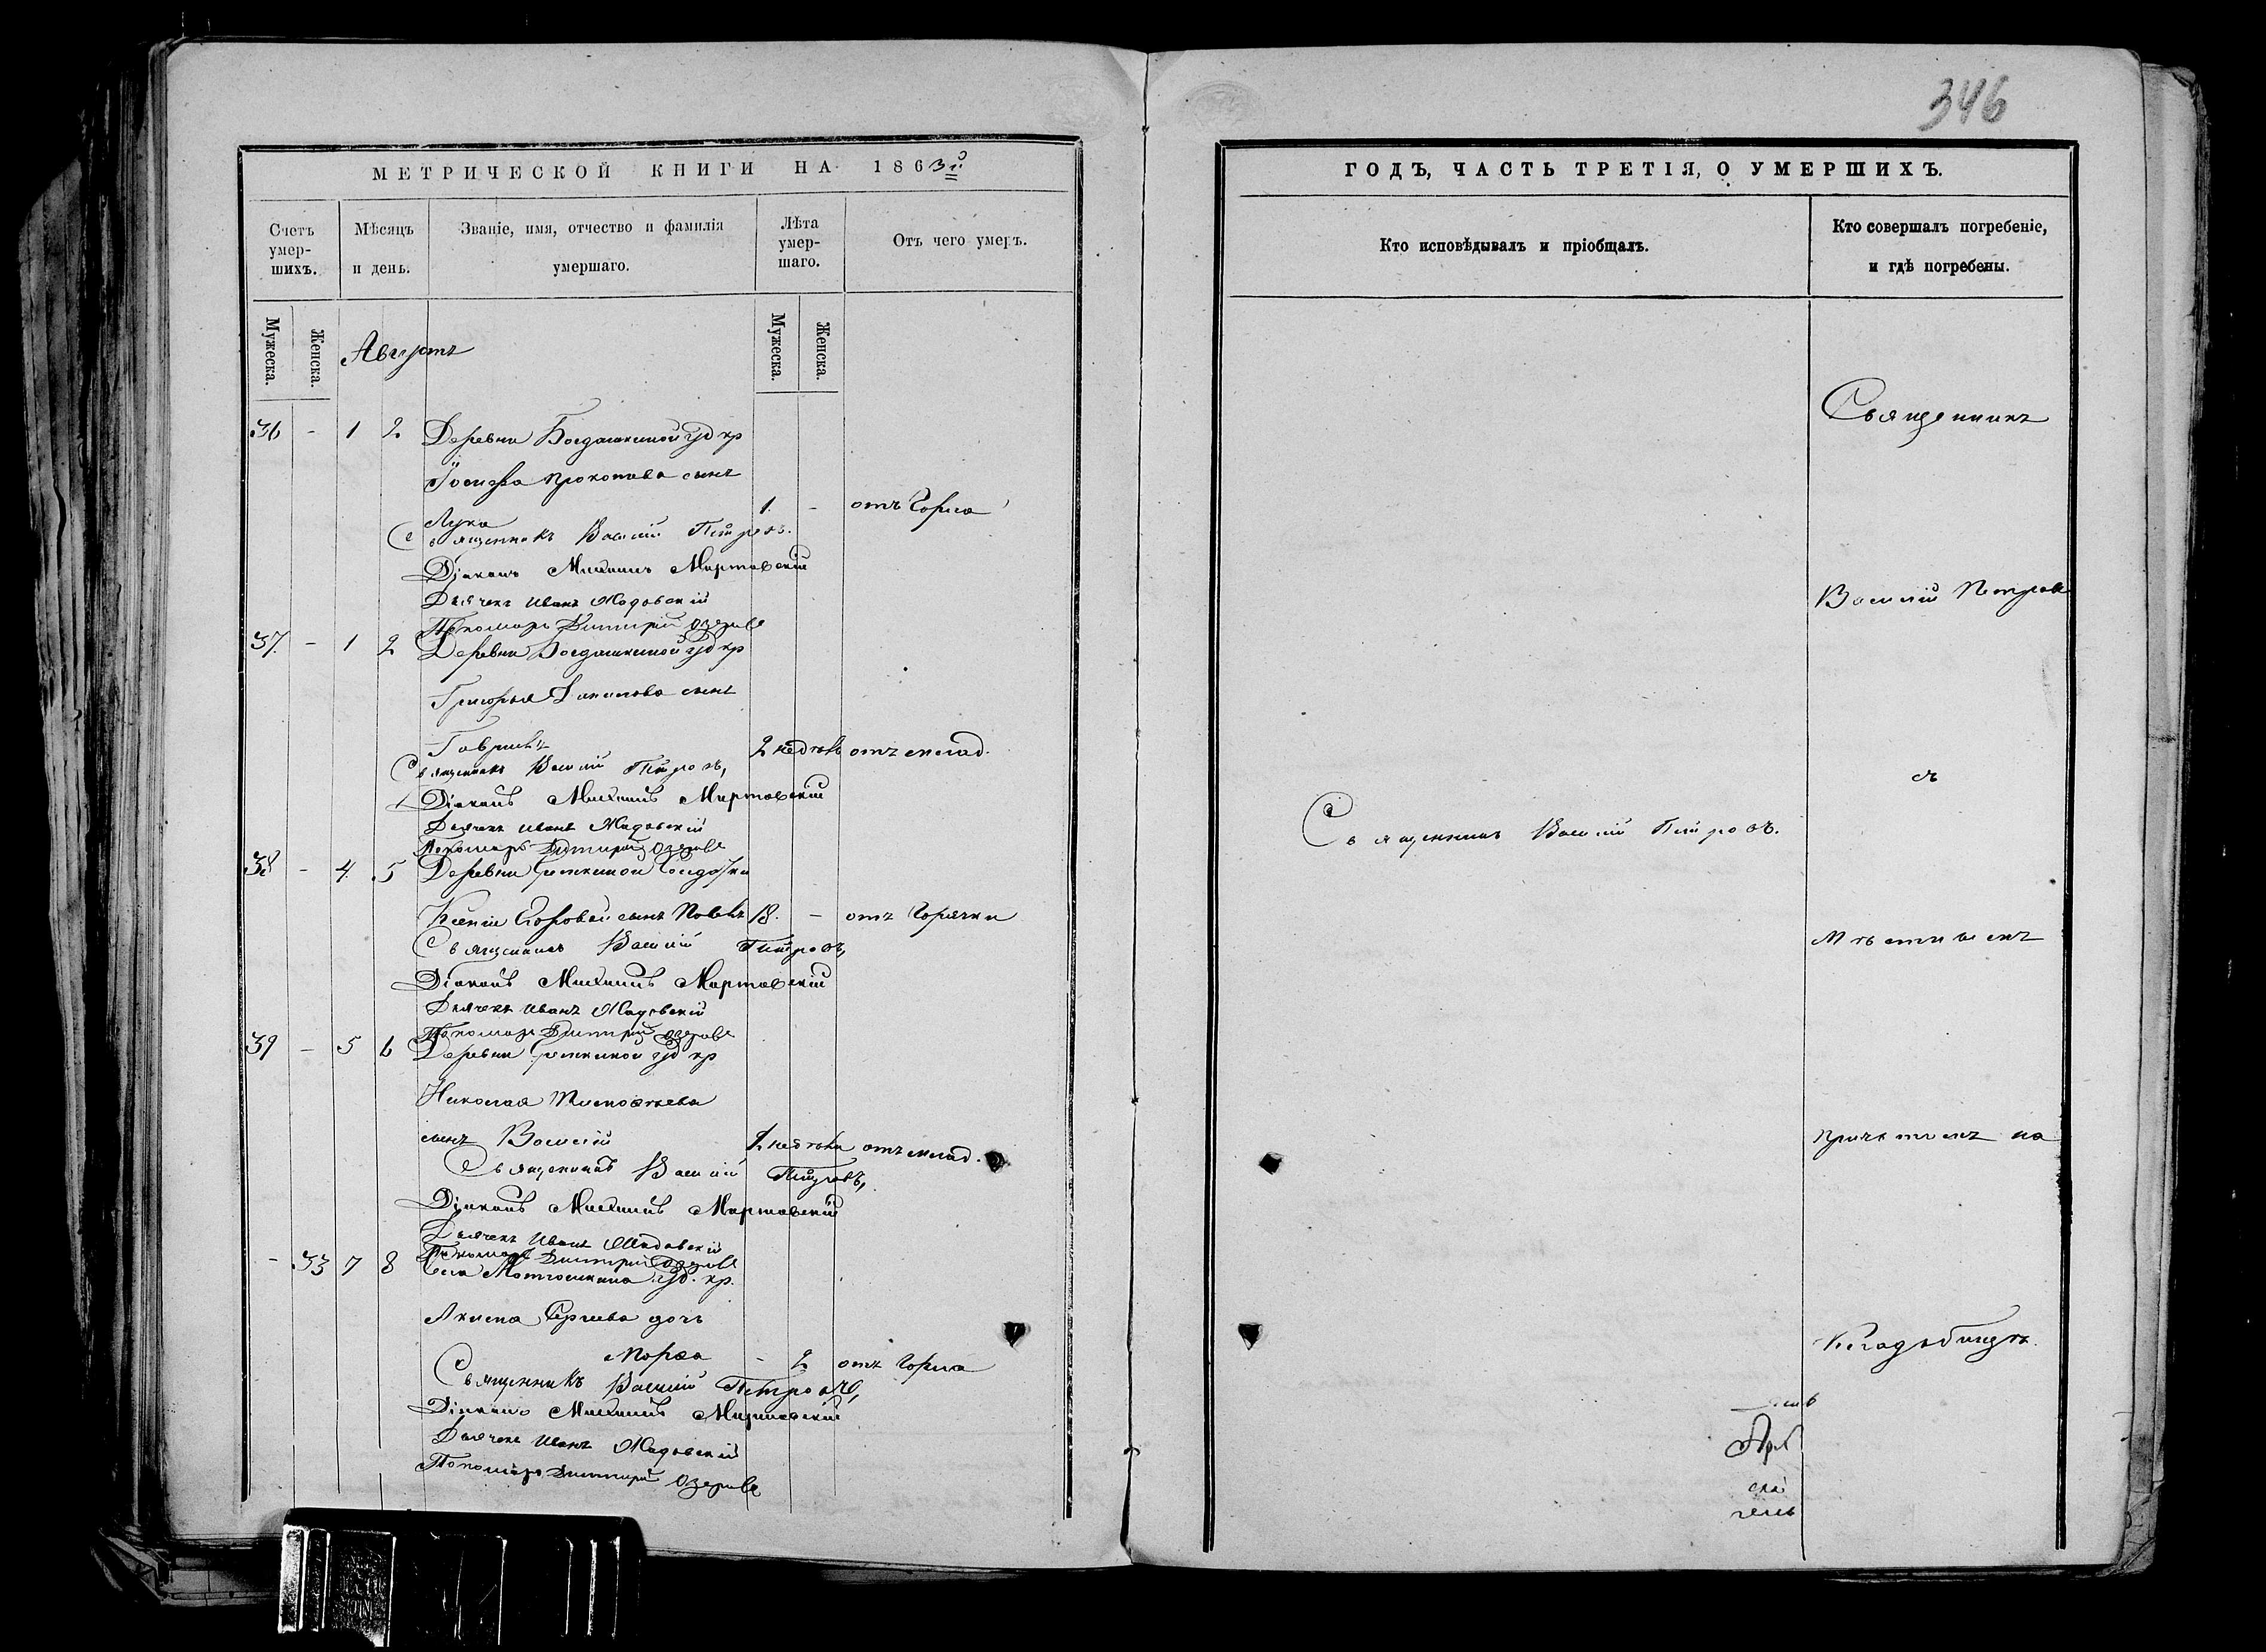 346
МЕТРИЧЕСКОЙ КНИГИ НА 1863й
Счетъ умер-шихъ.
Мѣсяцъ и день.
Званіе, имя, отчество и фамилія умершаго.
Лѣта умер-шаго.
Отъ чего умеръ.
Мужеска.
Женска.
Августъ
Мужеска.
Женска.
36 - 1 2 Деревни Богдашкиной уд кр
Іосифа Прокопьева сынъ
Лука 1. - отъ Горла
Священникъ Василій Петровъ.
Діаконъ Михаилъ Мартовскій
Дьячекъ Иванъ
Пономарь Димитрій Озеровъ
37. - 1 2 Деревни Богдашкиной уд кр
Григорья сынъ
Гавриилъ 2 недѣль отъ млад.
Священникъ Василій Петровъ,
Діаконъ Михаилъ Мартовскій
Дьячекъ Иванъ
Пономарь Димитрій Озеровъ
38 - 4. 5 Деревни солдатки
Ксеніи Егоровой сынъ 18. - отъ Горячки
Священникъ Василій Петровъ,
Діаконъ Михаилъ Мартовскій
Дьячекъ Иванъ
Пономарь Димитрій Озеровъ
39 - 5 6 Деревни уд кр
Николая Тимофѣева
сынъ Василій недѣли отъ млад.
Священникъ Василій Петровъ,
Діаконъ Михаилъ Мартовскій
Дьячекъ Иванъ
Пономарь Димитрій Озеровъ
- 33 7 8 Села уд. кр.
Сергѣева дочь
Марѳа - 2 отъ Горла
Священникъ Василій Петровъ,
Діаконъ Михаилъ Мартовскій
Дьячекъ Иванъ
Пономарь Димитрій Озеровъ
ГОДЪ, ЧАСТЬ ТРЕТІЯ, О УМЕРШИХЪ.
Кто исповѣдывалъ и пріобщалъ.
Кто совершалъ погребеніе, и гдѣ погребены.
Священникъ Василій Петровъ.
Священникъ
Василій Петровъ
съ
Мѣстнымъ
причтомъ на
Кладбищѣ.